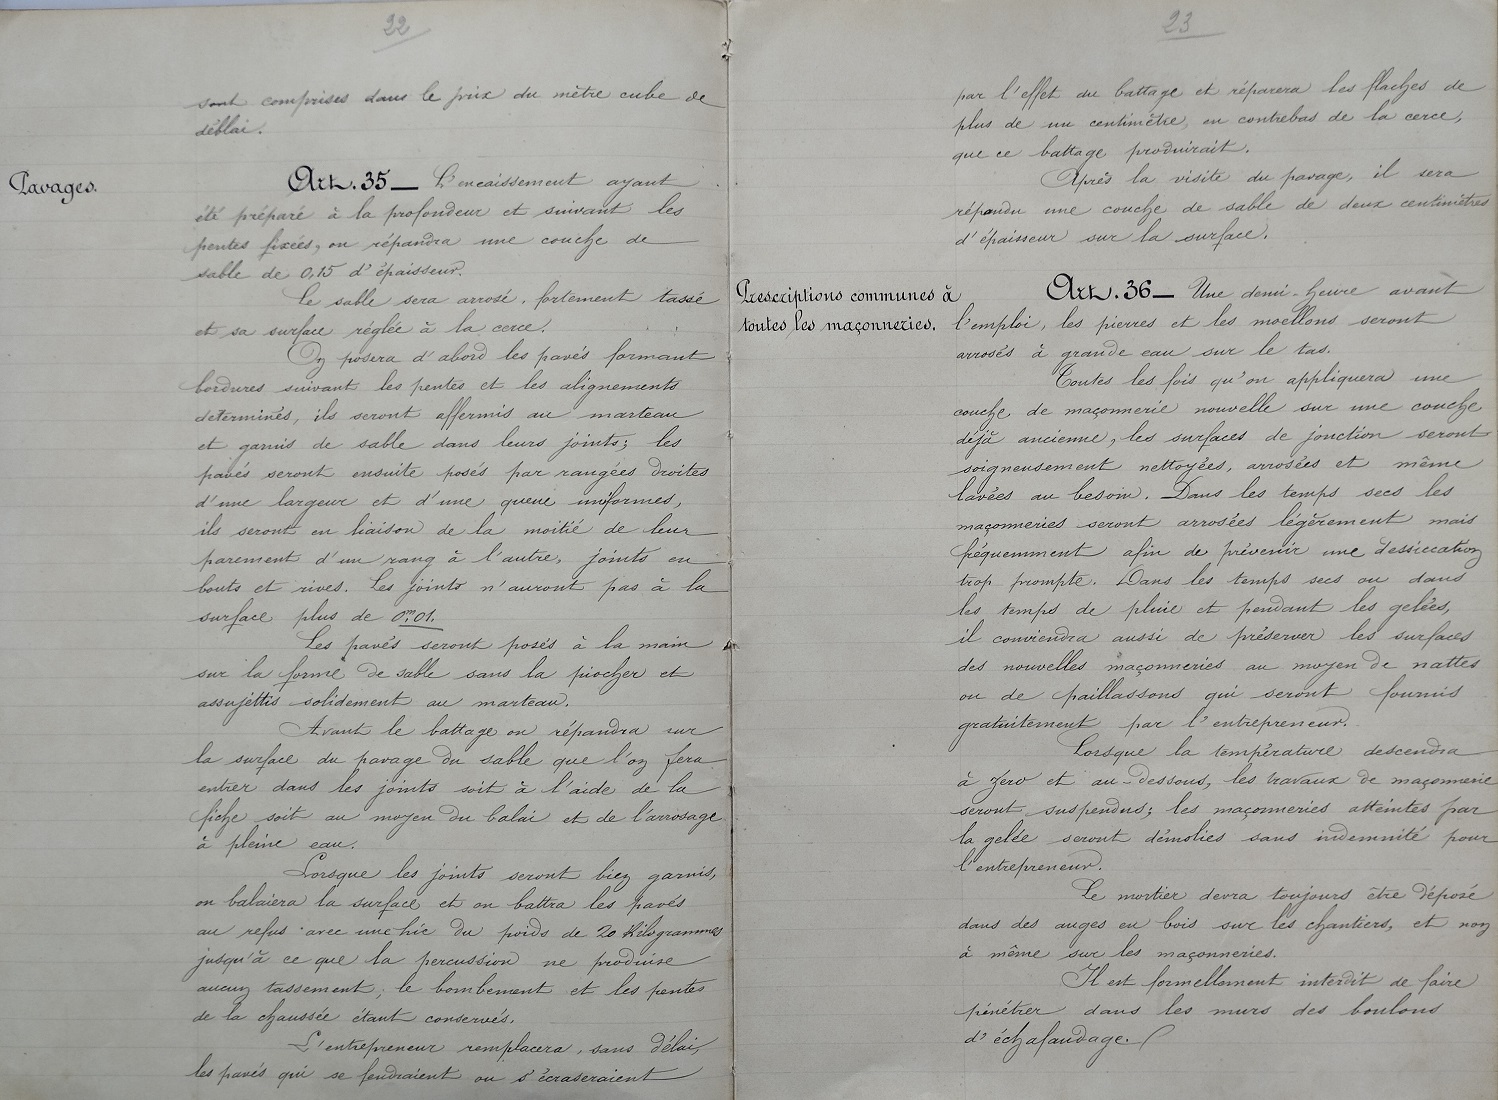 22
sont comprises dans le prix du mètre cube de
déblai.
Pavages.
Art. 35 — L'encaissement ayant
été préparé à la profondeur et suivant les
pentes fixées, on répandra une couche de
sable de 0,15 d'épaisseur.
Le sable sera arrosé, fortement tassé
et sa surface réglée à la cerce.
On posera d'abord les pavés formant
bordures suivant les pentes et les alignements
determinés, ils seront affermis au marteau
et garnis de sable dans leurs joints; les
pavés seront ensuite posés par rangées droites
d'une largeur et d'une queue uniformes,
ils seront en liaison de la moitié de leur
parement d'un rang à l'autre, joints en
bouts et rives. Les joints n'auront pas à la
surface plus de 0m,01.
Les pavés seront posés à la main
sur la forme de sable sans la piocher et
assujettis solidement au marteau.
Avant le battage on répandra sur
la surface du pavage du sable que l'on fera
entrer dans les joints soit à l'aide de la
fiche soit au moyen du balai et de l'arrosage
à pleine eau.
Lorsque les joints seront bien garnis,
on balaiera la surface et on battra les pavés
au refus avec une hie du poids de 20 Kilogrammes
jusqu'à ce que la percussion ne produise
aucun tassement; le bombement et les pentes
de la chaussée étant conservés.
L'entrepreneur remplacera, sans délai,
les pavés qui se fendraient ou s'écraseraient
23
par l'effet du battage et réparera les flaches de
plus de un centimètre, en contrebas de la cerce,
que ce battage produirait.
Après la visite du pavage, il sera
répandu une couche de sable de deux centimètres
d'épaisseur sur la surface.
Prescriptions communes à
toutes les maçonneries.
Art. 36 — Une demi-heure avant
l'emploi, les pierres et les moellons seront
arrosés à grande eau sur le tas.
Toutes les fois qu'on appliquera une
couche de maçonnerie nouvelle sur une couche
déjà ancienne, les surfaces de jonction seront
soigneusement nettoyées, arrosées et même
lavées au besoin. Dans les temps secs les
maçonneries seront arrosées légèrement mais
fréquemment afin de prévenir une dessiccation
trop prompte. Dans les temps secs ou dans
les temps de pluie et pendant les gelées,
il conviendra aussi de préserver les surfaces
des nouvelles maçonneries au moyen de nattes
ou de paillassons qui seront fournis
gratuitement par l'entrepreneur.
Lorsque la température descendra
à zero et au-dessous, les travaux de maçonnerie
seront suspendus; les maçonneries atteintes par
la gelée seront démolies sans indemnité pour
l'entrepreneur.
Le mortier devra toujours être déposé
dans des auges en bois sur les chantiers, et non
à même sur les maçonneries.
Il est formellement interdit de faire
pénétrer dans les murs des boulons
d'échafaudage.